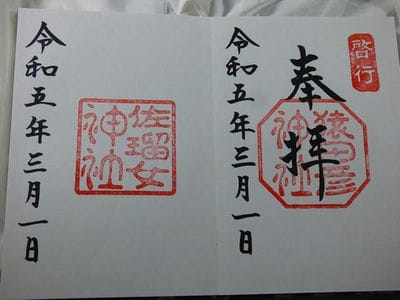 啓行
奉拝
猿田彦
神社
令和五年三月一日
佐瑠女
神社
令和五年三月一日